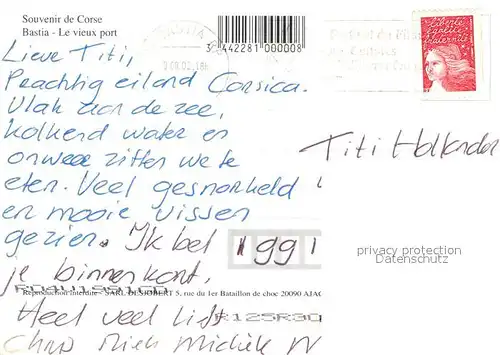 Souvenir de Corse
Bastia - Le vieux port
3 442281 000008
liberté
égalité
fraternité
Lieve Titi,
Prachtig eiland Corsica.
Vlak aan de zee,
kolkend water en
onweer zitten we te
eten. Veel gesnorkeld
en mooie vissen
gezien. Ik bel
je binnenkort.
Heel veel liefs
Chris Mieke Michèle
Titi Hollander
1991
privacy protection
Datenschutz
Reproduction interdite - SARL DESJOBERT 5, rue du 1er Bataillon de choc 20090 AJAC
R125R30